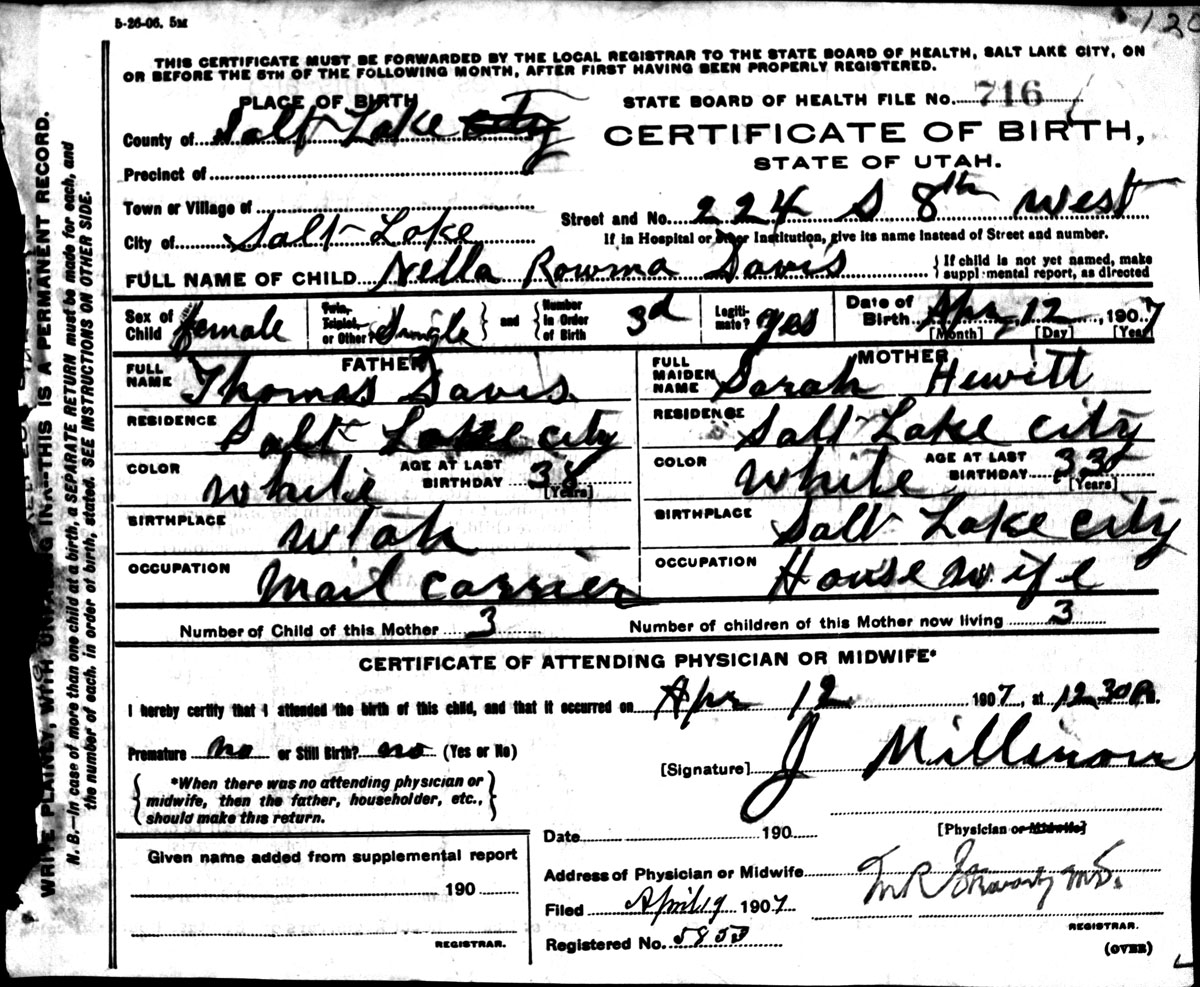 5-26-06. 5M
120
THIS CERTIFICATE MUST BE FORWARDED BY THE LOCAL REGISTRAR TO THE STATE BOARD OF HEALTH, SALT LAKE CITY, ON
OR BEFORE THE 5TH OF THE FOLLOWING MONTH, AFTER FIRST HAVING BEEN PROPERLY REGISTERED.
PLACE OF BIRTH
STATE BOARD OF HEALTH FILE No. 716
County of Salt Lake City
CERTIFICATE OF BIRTH,
STATE OF UTAH.
Precinct of
Town or Village of
Street and No. 224 S 8th West
City of Salt Lake
If in Hospital or Other Institution, give its name instead of Street and number.
FULL NAME OF CHILD Nella Rowma Davis
If child is not yet named, make
supplemental report, as directed
Sex of Child female
Twin, Triplet, or Other? Single and Number in Order of Birth 3d
Legitimate? yes
Date of Birth Apr 12, 1907
[Month] [Day] [Year]
FATHER
FULL NAME Thomas Davis
RESIDENCE Salt Lake city
COLOR white AGE AT LAST BIRTHDAY 38
[Years]
BIRTHPLACE Utah
OCCUPATION Mail Carrier
MOTHER
FULL MAIDEN NAME Sarah Hewitt
RESIDENCE Salt Lake city
COLOR White AGE AT LAST BIRTHDAY 33
[Years]
BIRTHPLACE Salt Lake city
OCCUPATION House wife
Number of Child of this Mother 3
Number of children of this Mother now living 3
CERTIFICATE OF ATTENDING PHYSICIAN OR MIDWIFE*
I hereby certify that I attended the birth of this child, and that it occurred on Apr 12 1907, at 12.30 P.M.
Premature no or Still Birth? no (Yes or No)
[Signature] J
*When there was no attending physician or
midwife, then the father, householder, etc.,
should make this return.
Date 190
[Physician or Midwife]
Given name added from supplemental report
190
REGISTRAR.
Address of Physician or Midwife
Filed April 19 1907
REGISTRAR.
Registered No. 5853
(OVER)
WRITE PLAINLY, WITH INK--THIS IS A PERMANENT RECORD.
N. B.—In case of more than one child at a birth, a SEPARATE RETURN must be made for each, and
the number of each, in order of birth, stated. SEE INSTRUCTIONS ON OTHER SIDE.